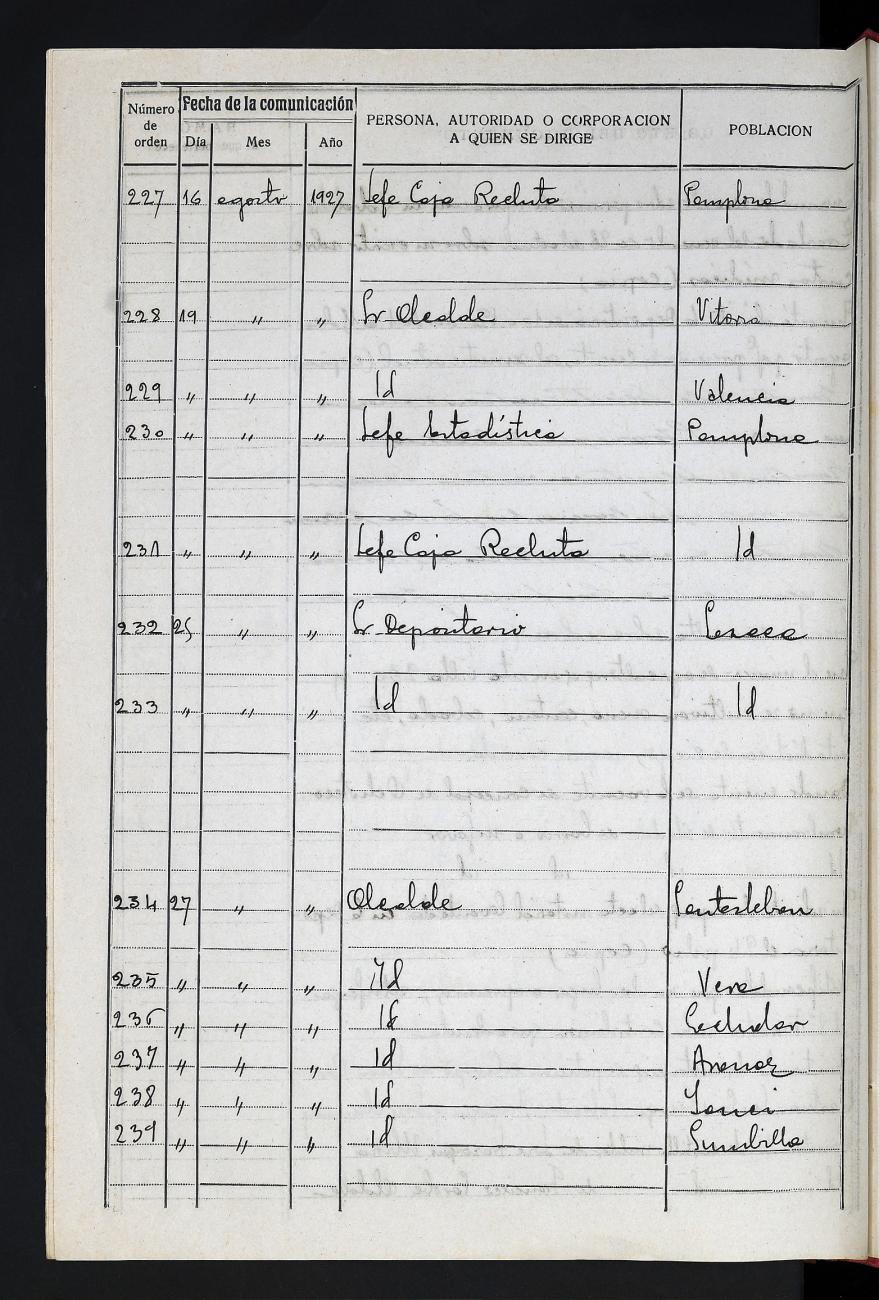 Número de orden Fecha de la comunicación Día Mes Año PERSONA, AUTORIDAD O CORPORACION A QUIEN SE DIRIGE POBLACION
227 16 agosto 1927 Jefe Caja Recluta Pamplona
228 19 " " Sr Alcalde Vitoria
229 " " " Id Valencia
230 " " " Jefe Estadística Pamplona
231 " " " Jefe Caja Recluta Id
232 25 " " Sr Depositario Lesaca
233 " " " Id Id
234 27 " " Alcalde Santesteban
235 " " " Id Vera
236 " " " Id Echalar
237 " " " Id Aranaz
238 " " " Id Yanci
239 " " " id Sumbilla